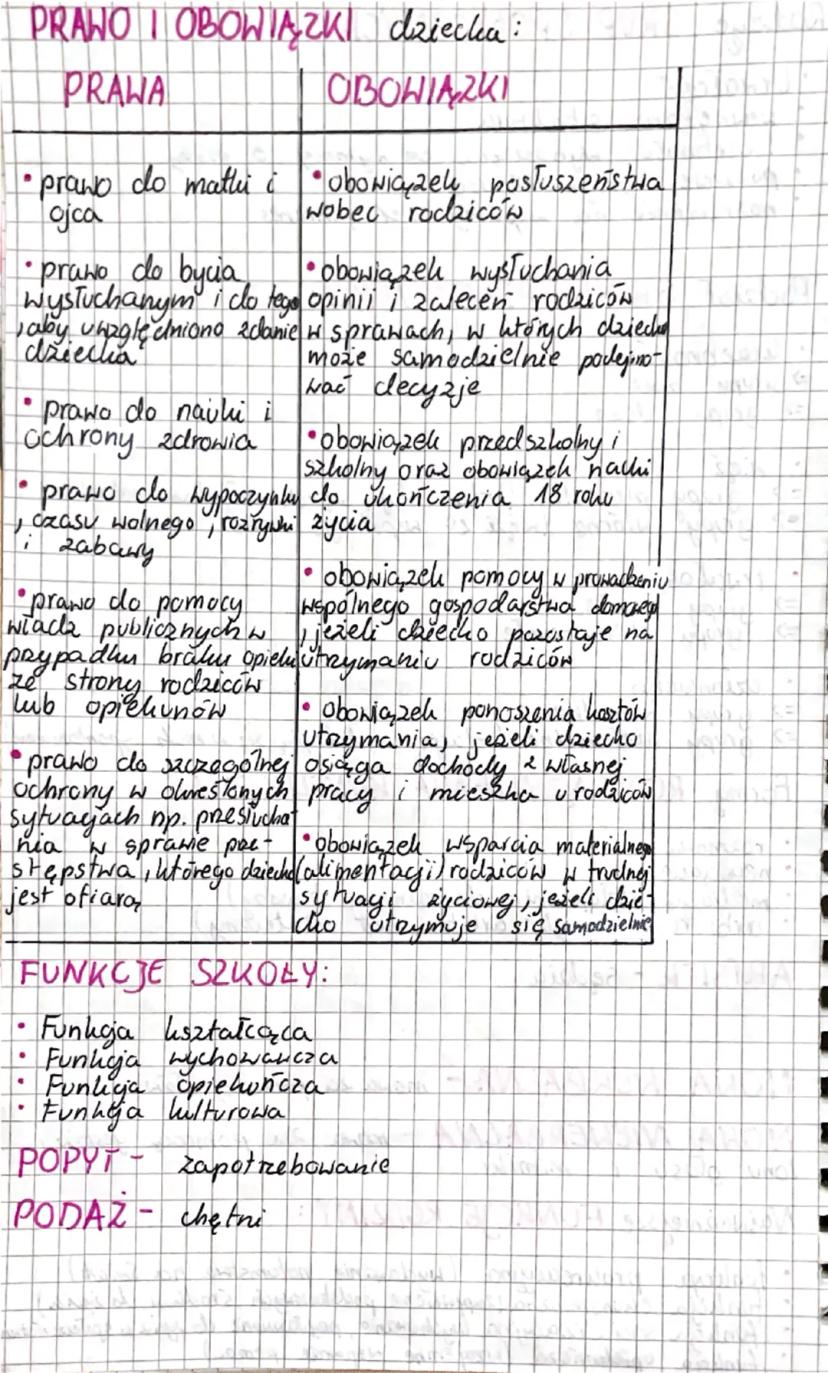 PRAWO I OBOWIĄZKI dziecka:
PRAWA
• prawo do matki i
ojca
• prawo do bycia
wysłuchanym i do tego
, aby uwzględniono zdanie
dziecka
• prawo do nauki i
ochrony zdrowia
• prawo do wypoczynku
, czasu wolnego, rozrywki
i zabawy
• prawo do pomocy
władz publicznych w
przypadku braku opieki
ze strony rodziców
lub opiekunów
• prawo do szczególnej
ochrony w określonych
sytuacjach np. przesłucha
nia w sprawie prze-
stępstwa, którego dziecko
jest ofiarą
OBOWIĄZKI
• obowiązek posłuszeństwa
wobec rodziców
• obowiązek wysłuchania
opinii i zaleceń rodziców
w sprawach, w których dziecko
może samodzielnie podejmo-
wać decyzje
• obowiązek przedszkolny i
szkolny oraz obowiązek nauki
do ukończenia 18 roku
życia
• obowiązek pomocy w prowadzeniu
wspólnego gospodarstwa domowego
, jeżeli dziecko pozostaje na
utrzymaniu rodziców
• obowiązek ponoszenia kosztów
utrzymania, jeżeli dziecko
osiąga dochody z własnej
pracy i mieszka u rodziców
• obowiązek wsparcia materialnego
(alimentacji) rodziców w trudnej
sytuacji życiowej, jeżeli dzie-
cko utrzymuje się samodzielnie
FUNKCJE SZKOŁY:
• Funkcja kształcąca
• Funkcja wychowawcza
• Funkcja opiekuńcza
• Funkcja kulturowa
POPYT - zapotrzebowanie
PODAŻ - chętni